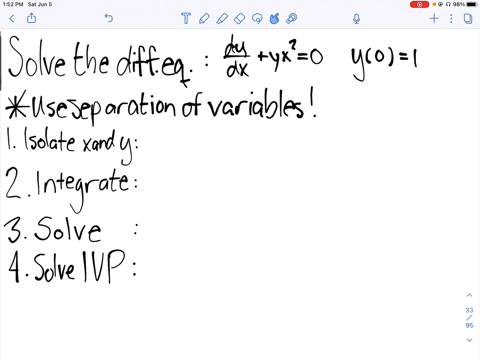 1:52 PM Sat Jun 5
98%
Solve the diff.eq. : dy/dx + yx²=0 y(0)=1
*Use separation of variables!
1. Isolate x and y:
2. Integrate:
3. Solve :
4. Solve IVP:
33
/
95